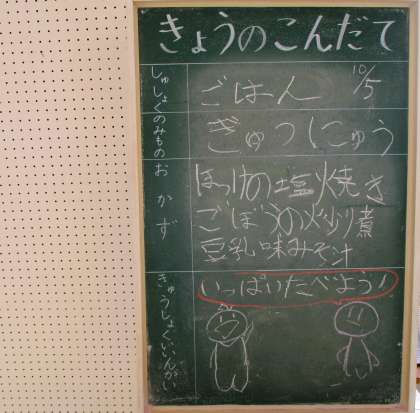 きょうのこんだて
しゅしょく
ごはん
10/5
のみもの
ぎゅうにゅう
おかず
ほっけの塩焼き
ごぼうの炒り煮
豆乳味みそ汁
きゅうしょくいいんかい
いっぱいたべよう！